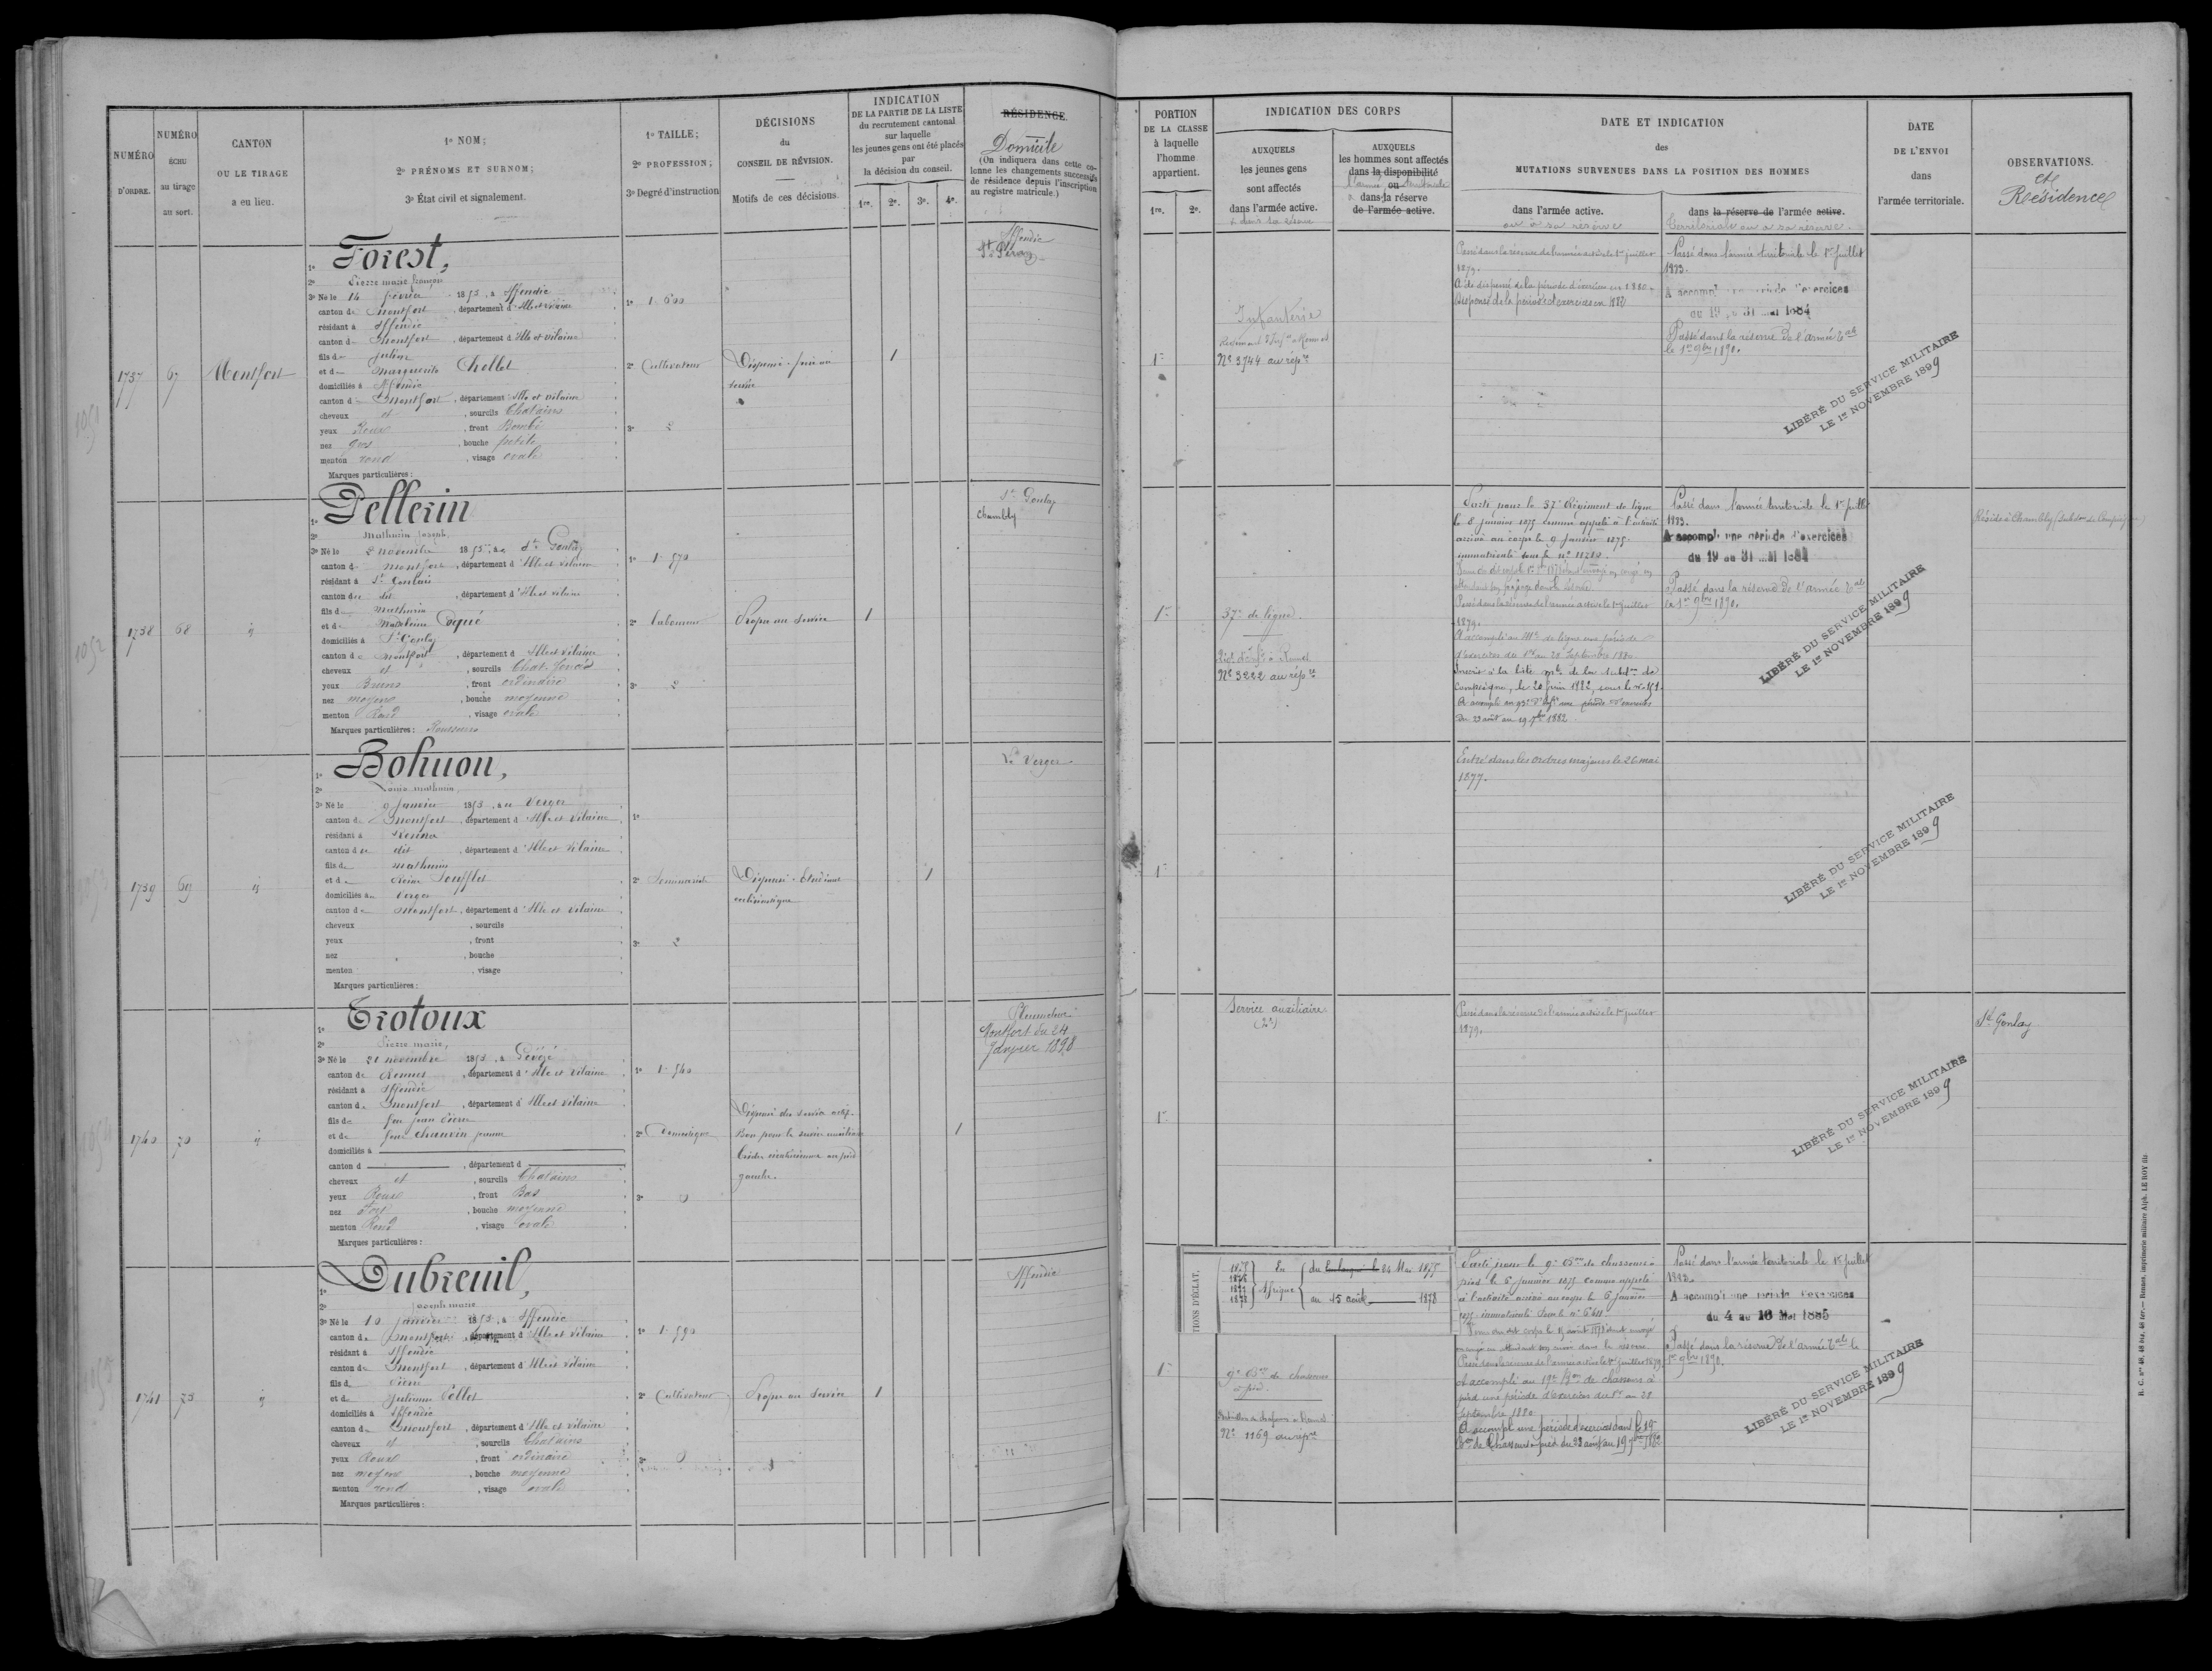 NUMÉRO
D'ORDRE.
NUMÉRO
ÉCHU
au tirage
au sort.
CANTON
OU LE TIRAGE
a eu lieu.
1º NOM;
2º PRÉNOMS ET SURNOM;
3º État civil et signalement.
1º TAILLE;
2º PROFESSION;
3º Degré d'instruction
DÉCISIONS
du
CONSEIL DE RÉVISION.
Motifs de ces décisions.
INDICATION
DE LA PARTIE DE LA LISTE
du recrutement cantonal
sur laquelle
les jeunes gens ont été placés
par
la décision du conseil.
1re. 2e. 3e. 4e.
RÉSIDENCE
Domicile
(On indiquera dans cette co-
lonne les changements successifs
de résidence depuis l'inscription
au registre matricule.)
1737
67
Montfort
1º Forest,
2º Pierre marie françois
3º Né le 14 février 1853, à Iffendic
canton de Montfort, département d'Ille et Vilaine
résidant à Iffendic
canton de Montfort, département d'Ille et Vilaine
fils de Julien
et de Marguerite Chollet
domiciliés à Iffendic
canton de Montfort, département d'Ille et Vilaine
cheveux et, sourcils Chatains
yeux Roux, front Bombé
nez gros, bouche petite
menton rond, visage ovale
Marques particulières:
1º 1. 600
2º Cultivateur
3º 2
Dispensé - frère au
service
1
Iffendic
1738
68
id
1º Pellerin
2º Mathurin Joseph
3º Né le 2 novembre 1853, à St Gonlay
canton de Montfort, département d'Ille et Vilaine
résidant à St Gonlay
canton du dit, département d'Ille et Vilaine
fils de Mathurin
et de Madeleine Piqué
domiciliés à St Gonlay
canton de Montfort, département d'Ille et Vilaine
cheveux et, sourcils Chat. foncés
yeux Bruns, front ordinaire
nez moyen, bouche moyenne
menton Rond, visage ovale
Marques particulières: Rousseurs
1º 1. 570
2º laboureur
3º 2
Propre au service
1
St Gonlay
Chambly
1739
69
id
1º Bohuon,
2º Louis mathurin
3º Né le 9 Janvier 1853, au Verger
canton de Montfort, département d'Ille et Vilaine
résidant à Rennes
canton du dit, département d'Ille et Vilaine
fils de Mathurin
et de Reine Soufflet
domiciliés au Verger
canton de Montfort, département d'Ille et Vilaine
cheveux, sourcils
yeux, front
nez, bouche
menton, visage
Marques particulières:
1º
2º Séminariste
3º 2
Dispensé - Etudiant
ecclésiastique
1
Le Verger
1740
70
id
1º Trotoux
2º Pierre marie,
3º Né le 21 novembre 1853, à Gévezé
canton de Rennes, département d'Ille et Vilaine
résidant à Iffendic
canton de Montfort, département d'Ille et Vilaine
fils de feu Jean Pierre
et de feue Chauvin Jeanne
domiciliés à
canton d, département d
cheveux et, sourcils Chatains
yeux Roux, front Bas
nez Fort, bouche moyenne
menton Rond, visage ovale
Marques particulières:
1º 1. 540
2º Domestique
3º 0
Dispensé du service actif.
Bon pour le service auxiliaire
gauche.
1
Pleumeleuc
Montfort du 24
Janvier 1898
1741
73
id
1º Dubreuil,
2º Joseph marie
3º Né le 10 janvier 1853, à Iffendic
canton de Montfort, département d'Ille et Vilaine
résidant à Iffendic
canton de Montfort, département d'Ille et Vilaine
fils de Pierre
et de Julienne Pellet
domiciliés à Iffendic
canton de Montfort, département d'Ille et Vilaine
cheveux et, sourcils Chatains
yeux Roux, front ordinaire
nez moyen, bouche moyenne
menton rond, visage ovale
Marques particulières:
1º 1. 590
2º Cultivateur
3º 0
Propre au service
1
Iffendic
PORTION
DE LA CLASSE
à laquelle
l'homme
appartient.
1re. 2e.
INDICATION DES CORPS
AUXQUELS
les jeunes gens
sont affectés
dans l'armée active.
AUXQUELS
les hommes sont affectés
dans la disponibilité
ou
dans la réserve
de l'armée active.
DATE ET INDICATION
des
MUTATIONS SURVENUES DANS LA POSITION DES HOMMES
dans l'armée active.
ou à sa réserve
dans la réserve de l'armée active.
territoriale ou à sa réserve.
DATE
DE L'ENVOI
dans
l'armée territoriale.
OBSERVATIONS.
et
Résidence
1re
Infanterie
Nº 3744 au répre
Passé dans la réserve de l'armée active le 1er juillet
1879.
A été dispensé de la période d'exercices en 1880.
Dispensé de la période d'exercices en 1882
Passé dans l'armée territoriale le 1er juillet
1883.
A accompli une période d'exercices
du 19 au 31 mai 1884
Passé dans la réserve de l'armée tale
le 1er 9bre 1890.
LIBÉRÉ DU SERVICE MILITAIRE
LE 1er NOVEMBRE 1899
1re
37e de ligne
Nº 3222 au répre
Parti pour le 37e Régiment de ligne
le 8 janvier 1875 comme appelé à l'activité
arrivé au corps le 9 Janvier 1875.
immatriculé sous le nº
Passé dans la réserve de l'armée active le 1er juillet
1879.
A accompli au de ligne une période
d'exercices du 1er au 28 Septembre 1880.
Inscrit à la liste mle de la Subdon de
Compiègne, le 20 juin 1882, sous le nº 151.
A accompli au d'infie une période d'exercices
du 23 août au 19 7bre 1882.
Passé dans l'armée territoriale le 1er juillet
1883.
A accompli une période d'exercices
du 19 au 31 mai 1884
Passé dans la réserve de l'armée tale
le 1er 9bre 1890.
LIBÉRÉ DU SERVICE MILITAIRE
LE 1er NOVEMBRE 1899
Réside à Chambly (Subdon de Compiègne)
1re
Entré dans les ordres majeurs le 26 mai
1877.
LIBÉRÉ DU SERVICE MILITAIRE
LE 1er NOVEMBRE 1899
1re
Service auxiliaire
Passé dans la réserve de l'armée active le 1er juillet
1879.
LIBÉRÉ DU SERVICE MILITAIRE
LE 1er NOVEMBRE 1899
St Gonlay
TIONS D'ÉCLAT,
1875
1876
1877
1878
En
Afrique
du Embarqué le 24 Mai 1875
au 15 août 1878
1re
9e Bon de chasseurs
à pied.
Nº 1169 au répre
Parti pour le 9e Bon de chasseurs à
pied le 5 Janvier 1875 comme appelé
à l'activité arrivé au corps le 6 janvier
1875. immatriculé sous le nº
Passé dans la réserve de l'armée active le 1er juillet 1879.
A accompli au 19e Bon de chasseurs à
pied une période d'exercices du 1er au 28
Septembre 1880
A accompli une période d'exercices dans le 19e
Bon de Chasseurs à pied du 23 août au 19 7bre 1882
Passé dans l'armée territoriale le 1er juillet
A accompli une période d'exercices
du 4 au 16 Mai 1885
Passé dans la réserve de l'armée tale le
1er 9bre 1890.
LIBÉRÉ DU SERVICE MILITAIRE
LE 1er NOVEMBRE 1899